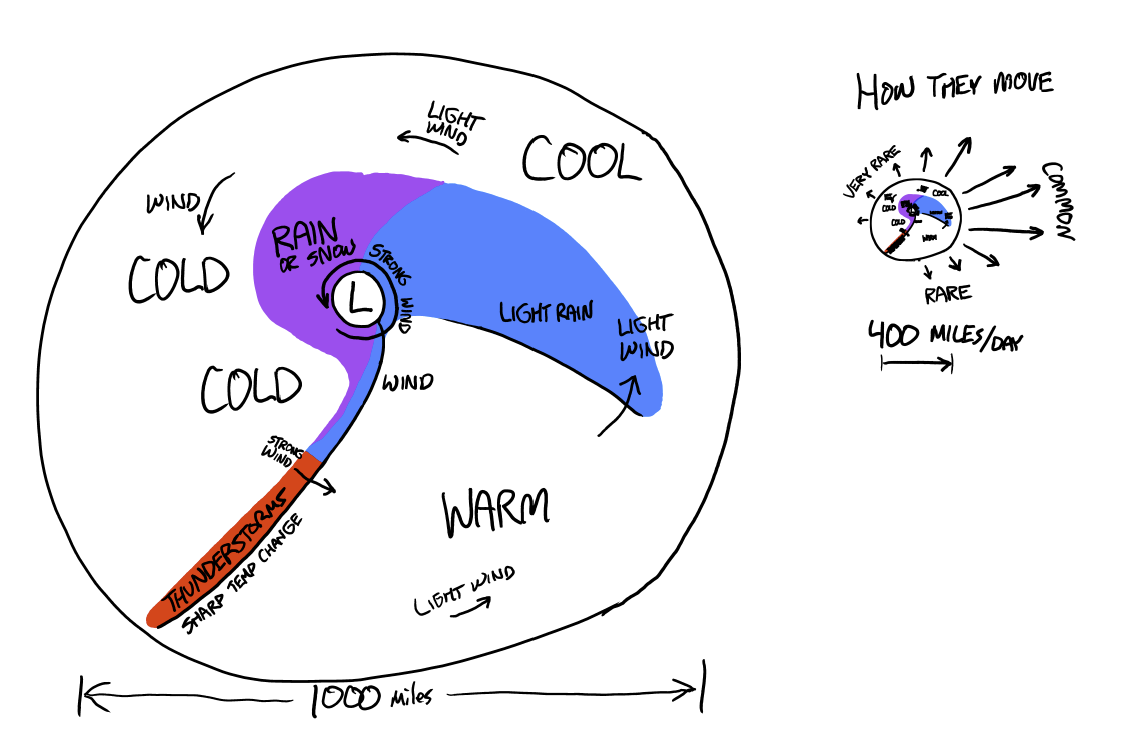 LIGHT
WIND
COOL
WIND
COLD
RAIN
OR SNOW
STRONG
WIND
L
LIGHT RAIN
LIGHT
WIND
COLD
WIND
STRONG
WIND
THUNDERSTORMS
SHARP TEMP CHANGE
WARM
LIGHT WIND
1000 MILES
HOW THEY MOVE
VERY RARE
COMMON
COOL
COLD
COLD
WARM
RARE
400 MILES/DAY